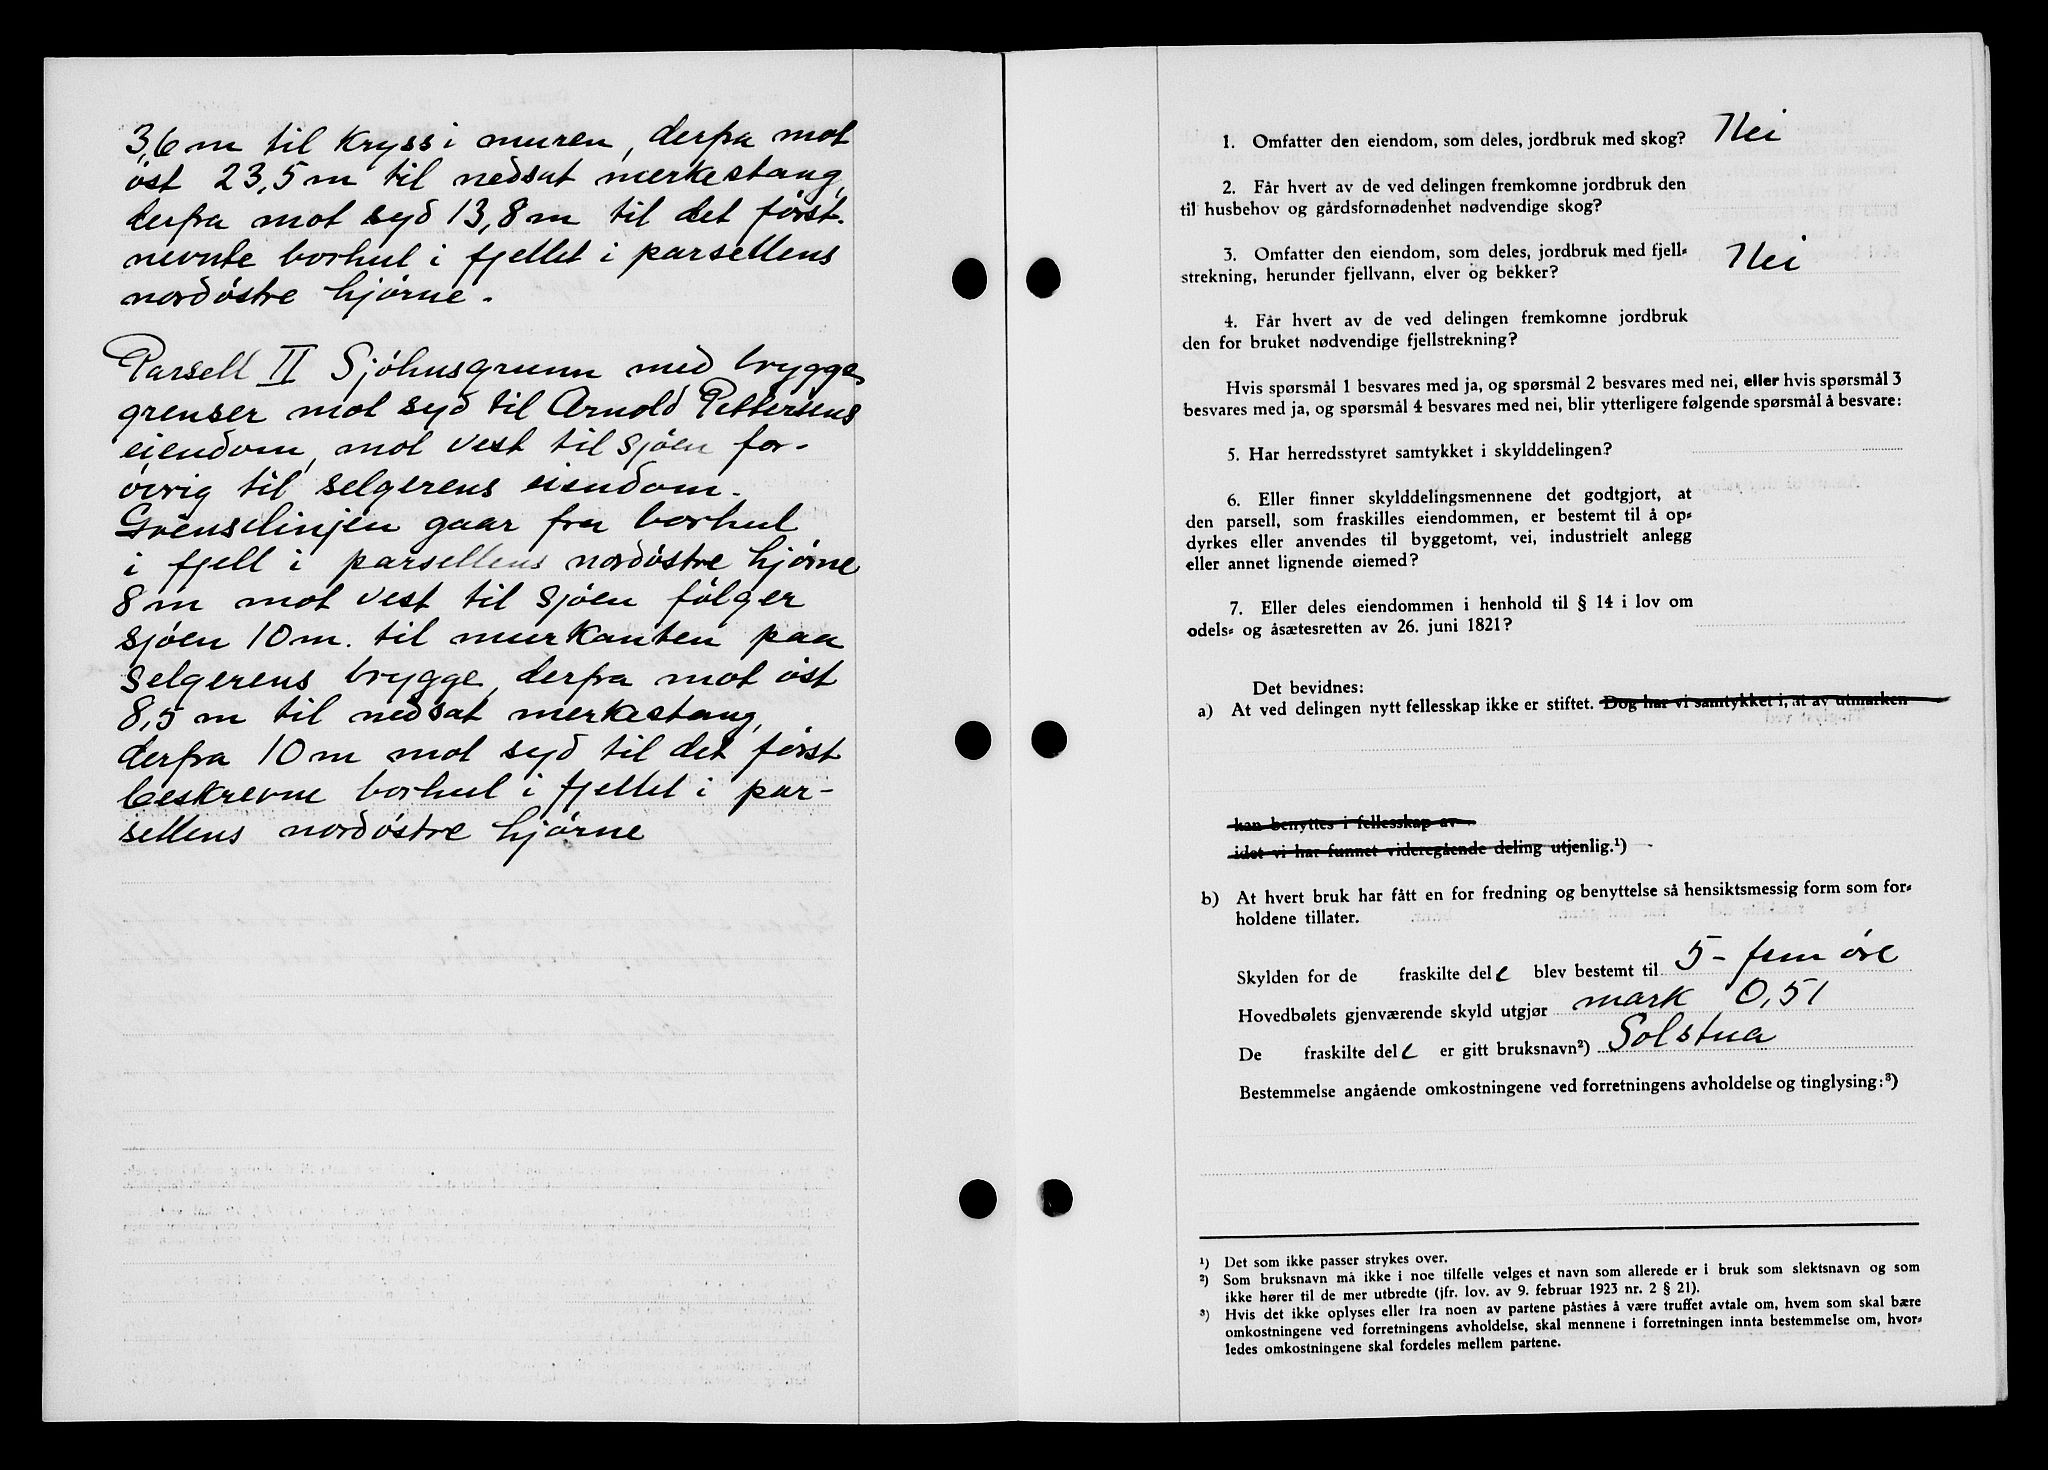 3,6 m til kryss i muren, derfra mot
øst 23,5 m til nedsat merkestang,
derfra mot syd 13,8 m til det først-
nevnte borhul i fjellet i parsellens
nordøstre hjørne.
Parsell II Sjøhusgrunn med brygge,
grenser mot syd til Arnold Pettersens
eiendom, mot vest til sjøen for-
øvrig til selgerens eiendom.
Grenselinjen gaar fra borhul
i fjell i parsellens nordøstre hjørne
8 m mot vest til sjøen følger
sjøen 10 m. til murkanten paa
selgerens brygge, derfra mot øst
8,5 m til nedsat merkestang,
derfra 10 m mot syd til det først
beskrevne borhul i fjellet i par-
sellens nordøstre hjørne
1. Omfatter den eiendom, som deles, jordbruk med skog? Nei
2. Får hvert av de ved delingen fremkomne jordbruk den
til husbehov og gårdsfornødenhet nødvendige skog?
3. Omfatter den eiendom, som deles, jordbruk med fjell-
strekning, herunder fjellvann, elver og bekker? Nei
4. Får hvert av de ved delingen fremkomne jordbruk
den for bruket nødvendige fjellstrekning?
Hvis spørsmål 1 besvares med ja, og spørsmål 2 besvares med nei, eller hvis spørsmål 3
besvares med ja, og spørsmål 4 besvares med nei, blir ytterligere følgende spørsmål å besvare:
5. Har herredsstyret samtykket i skylddelingen?
6. Eller finner skylddelingsmennene det godtgjort, at
den parsell, som fraskilles eiendommen, er bestemt til å op-
dyrkes eller anvendes til byggetomt, vei, industrielt anlegg
eller annet lignende øiemed?
7. Eller deles eiendommen i henhold til § 14 i lov om
odels- og åsætesretten av 26. juni 1821?
Det bevidnes:
a) At ved delingen nytt fellesskap ikke er stiftet. Dog har vi samtykket i, at av utmarken
kan benyttes i fellesskap av
idet vi har funnet videregående deling utjenlig.¹)
b) At hvert bruk har fått en for fredning og benyttelse så hensiktsmessig form som for-
holdene tillater.
Skylden for de fraskilte dele blev bestemt til 5 - fem øre
Hovedbølets gjenværende skyld utgjør mark 0,51
De fraskilte dele er gitt bruksnavn²) Solstua
Bestemmelse angående omkostningene ved forretningens avholdelse og tinglysing:³)
¹) Det som ikke passer strykes over.
²) Som bruksnavn må ikke i noe tilfelle velges et navn som allerede er i bruk som slektsnavn og som
ikke hører til de mer utbredte (jfr. lov. av 9. februar 1923 nr. 2 § 21).
³) Hvis det ikke oplyses eller fra noen av partene påståes å være truffet avtale om, hvem som skal bære
omkostningene ved forretningens avholdelse, skal mennene i forretningen innta bestemmelse om, hvor-
ledes omkostningene skal fordeles mellem partene.